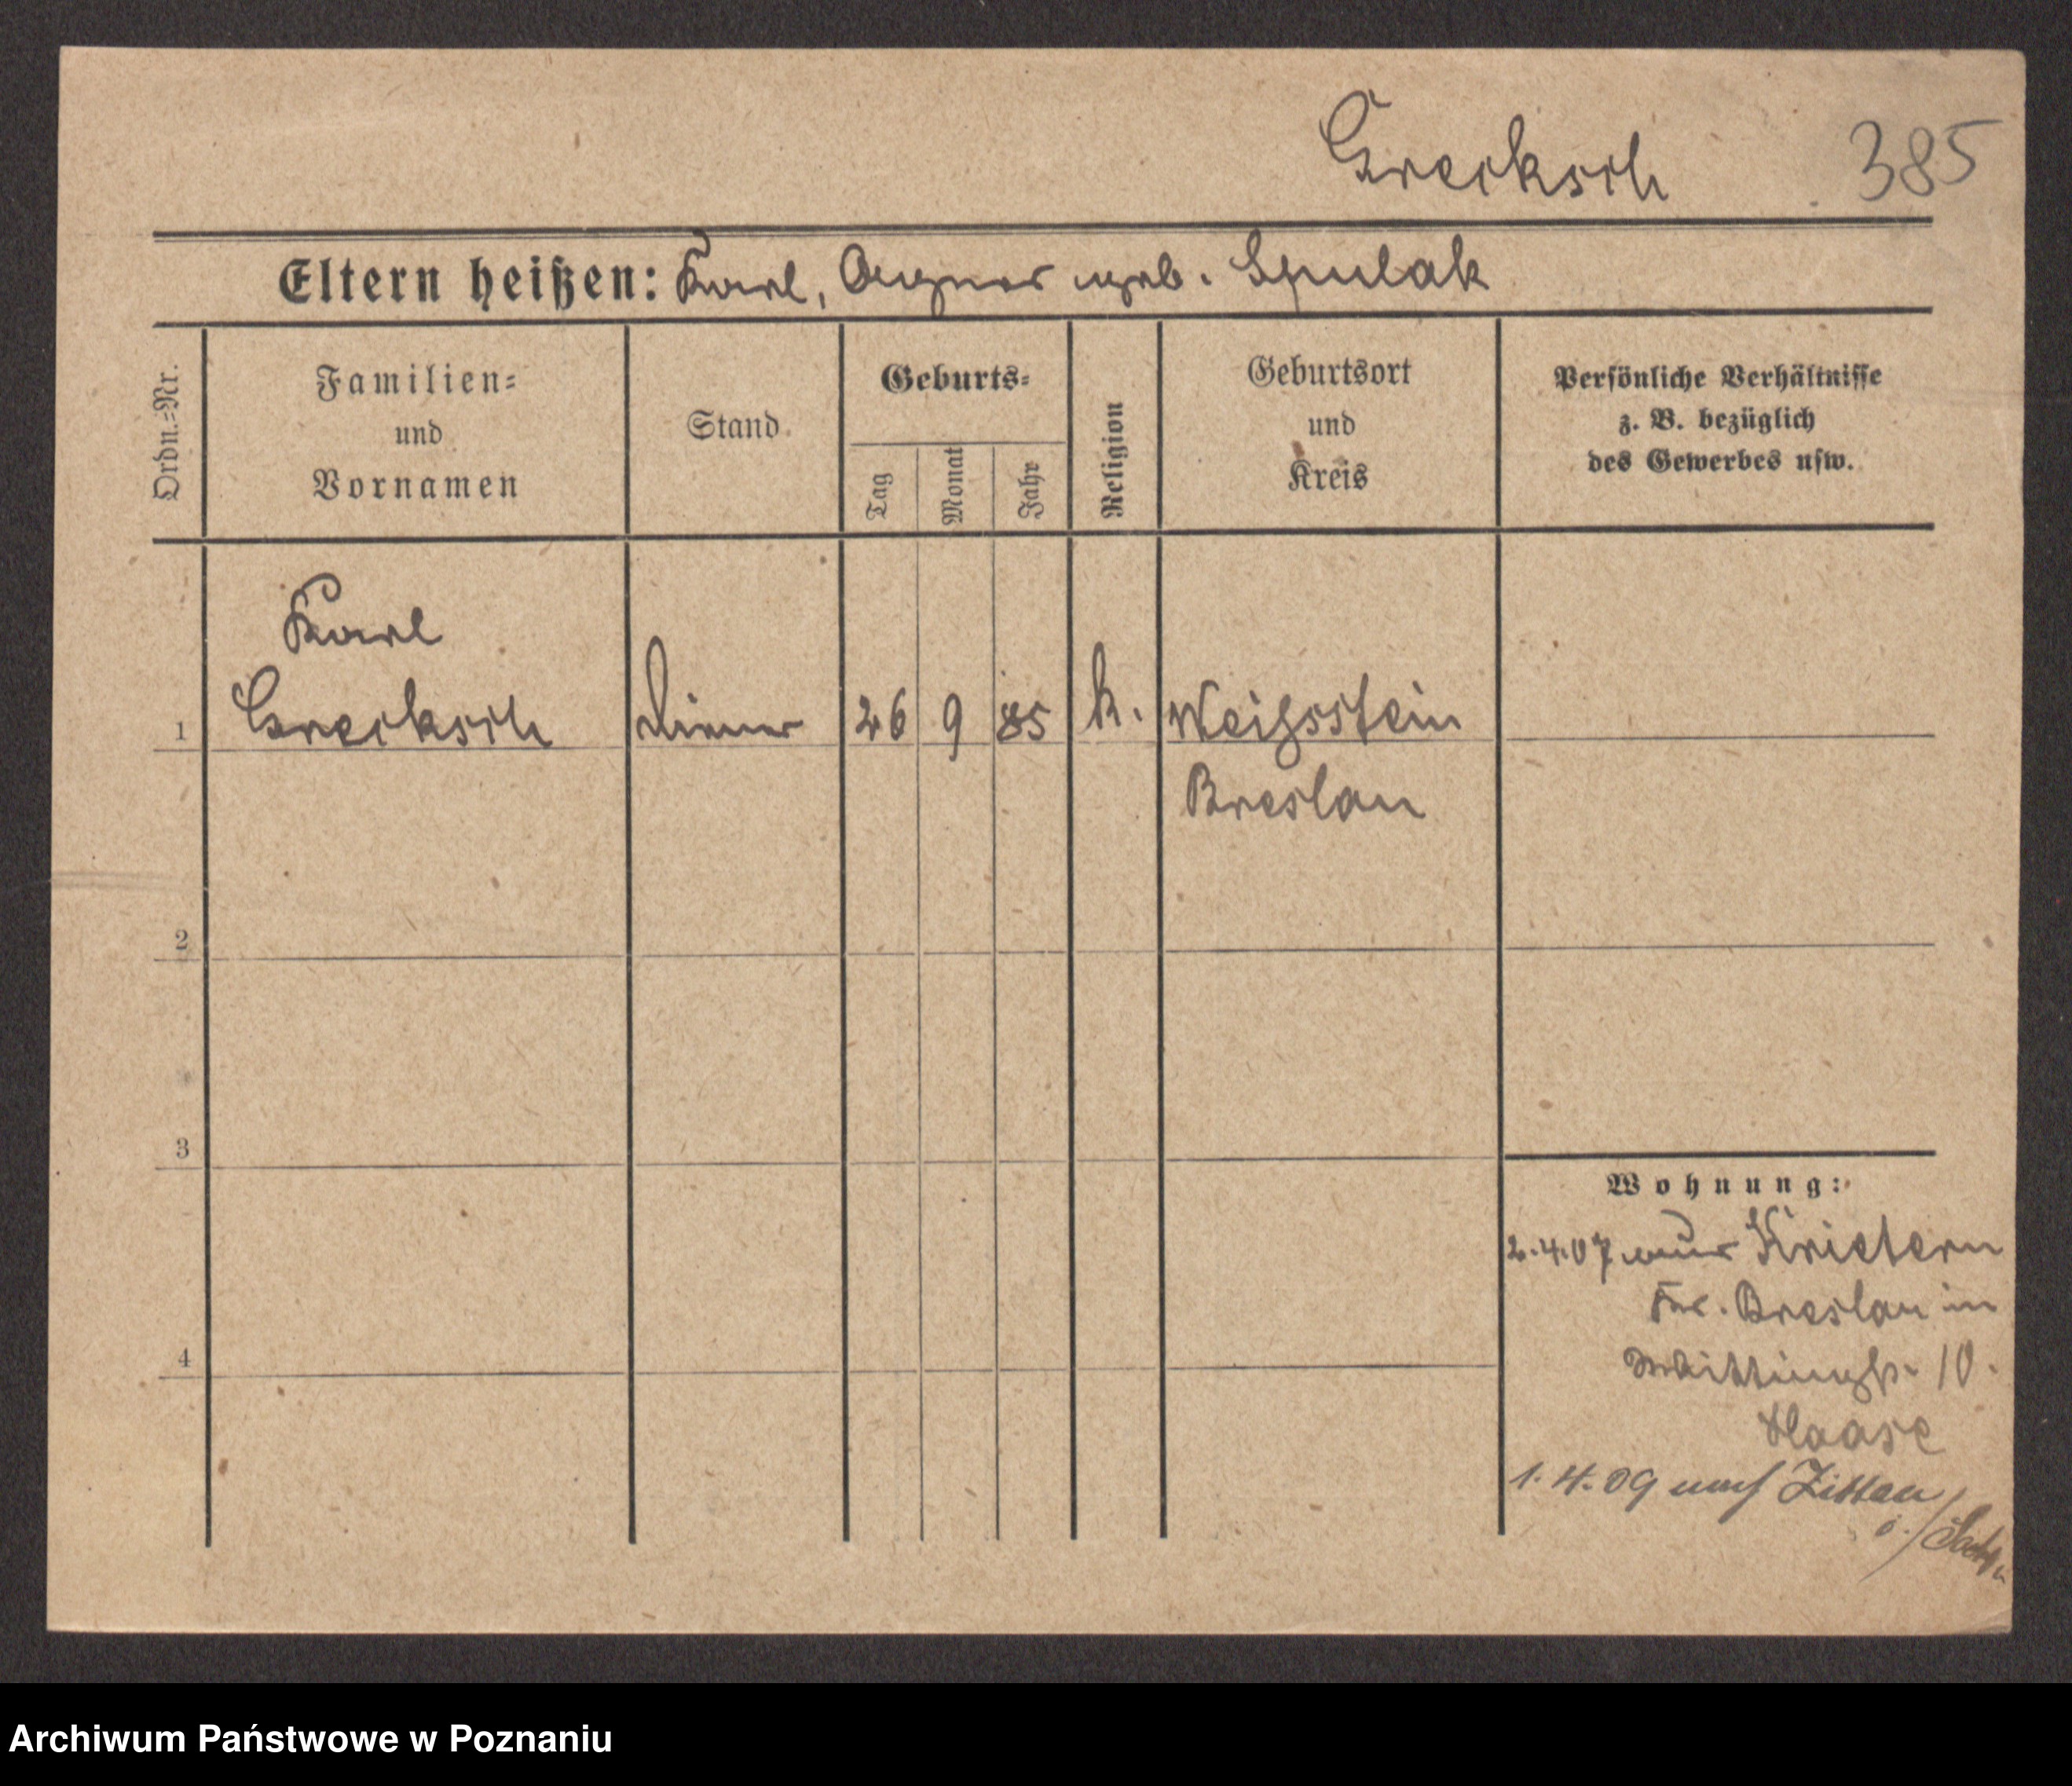 Grecksch 385
Eltern heißen: Karl, Agnes geb. Spulak
Ordn.=Nr.
Familien=
und
Vornamen
Stand
Geburts=
Tag
Monat
Jahr
Religion
Geburtsort
und
Kreis
Persönliche Verhältnisse
z. B. bezüglich
des Gewerbes usw.
Karl
1 Grecksch Diener 26 9 85 k. Weissstein
Breslau
2
3
4
Wohnung:
2.4.07 aus Krietern
Kr. Breslau in
10.
Haase
1.4.09 nach Zittau
i./Sachsen
Archiwum Państwowe w Poznaniu